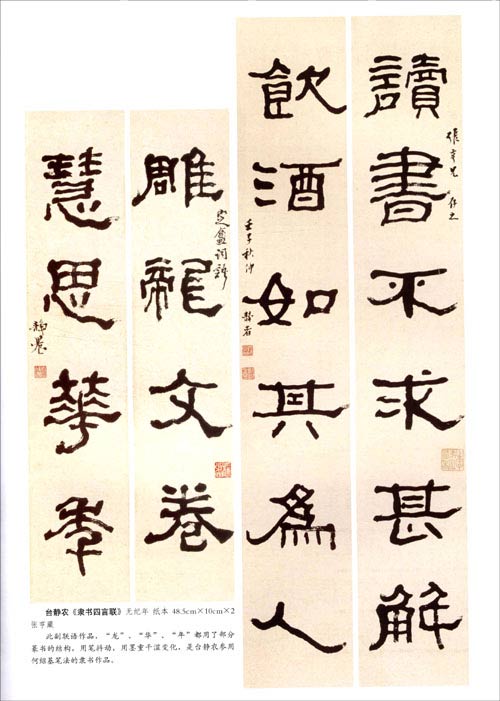 讀書不求甚解
飲酒如其爲人
壬子秋仲 靜者
雕龍文卷
慧思華年
台静农《隶书四言联》无纪年 纸本 48.5cm×10cm×2
张亨藏
此副联语作品，“龙”、“华”、“年”都用了部分
篆书的结构，用笔抖动，用墨重干湿变化，是台静农参用
何绍基笔法的隶书作品。